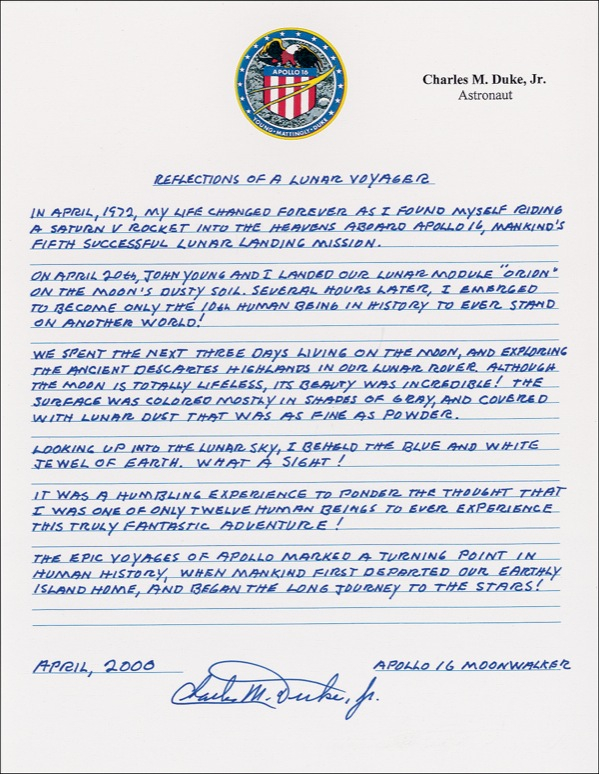 APOLLO 16
YOUNG • MATTINGLY • DUKE
Charles M. Duke, Jr.
Astronaut
REFLECTIONS OF A LUNAR VOYAGER
IN APRIL, 1972, MY LIFE CHANGED FOREVER AS I FOUND MYSELF RIDING
A SATURN V ROCKET INTO THE HEAVENS ABOARD APOLLO 16, MANKIND'S
FIFTH SUCCESSFUL LUNAR LANDING MISSION.
ON APRIL 20th, JOHN YOUNG AND I LANDED OUR LUNAR MODULE "ORION"
ON THE MOON'S DUSTY SOIL. SEVERAL HOURS LATER, I EMERGED
TO BECOME ONLY THE 10th HUMAN BEING IN HISTORY TO EVER STAND
ON ANOTHER WORLD!
WE SPENT THE NEXT THREE DAYS LIVING ON THE MOON, AND EXPLORING
THE ANCIENT DESCARTES HIGHLANDS IN OUR LUNAR ROVER. ALTHOUGH
THE MOON IS TOTALLY LIFELESS, ITS BEAUTY WAS INCREDIBLE! THE
SURFACE WAS COLORED MOSTLY IN SHADES OF GRAY, AND COVERED
WITH LUNAR DUST THAT WAS AS FINE AS POWDER.
LOOKING UP INTO THE LUNAR SKY, I BEHELD THE BLUE AND WHITE
JEWEL OF EARTH. WHAT A SIGHT!
IT WAS A HUMBLING EXPERIENCE TO PONDER THE THOUGHT THAT
I WAS ONE OF ONLY TWELVE HUMAN BEINGS TO EVER EXPERIENCE
THIS TRULY FANTASTIC ADVENTURE!
THE EPIC VOYAGES OF APOLLO MARKED A TURNING POINT IN
HUMAN HISTORY, WHEN MANKIND FIRST DEPARTED OUR EARTHLY
ISLAND HOME, AND BEGAN THE LONG JOURNEY TO THE STARS!
APRIL, 2000
APOLLO 16 MOONWALKER
Charles M. Duke, Jr.